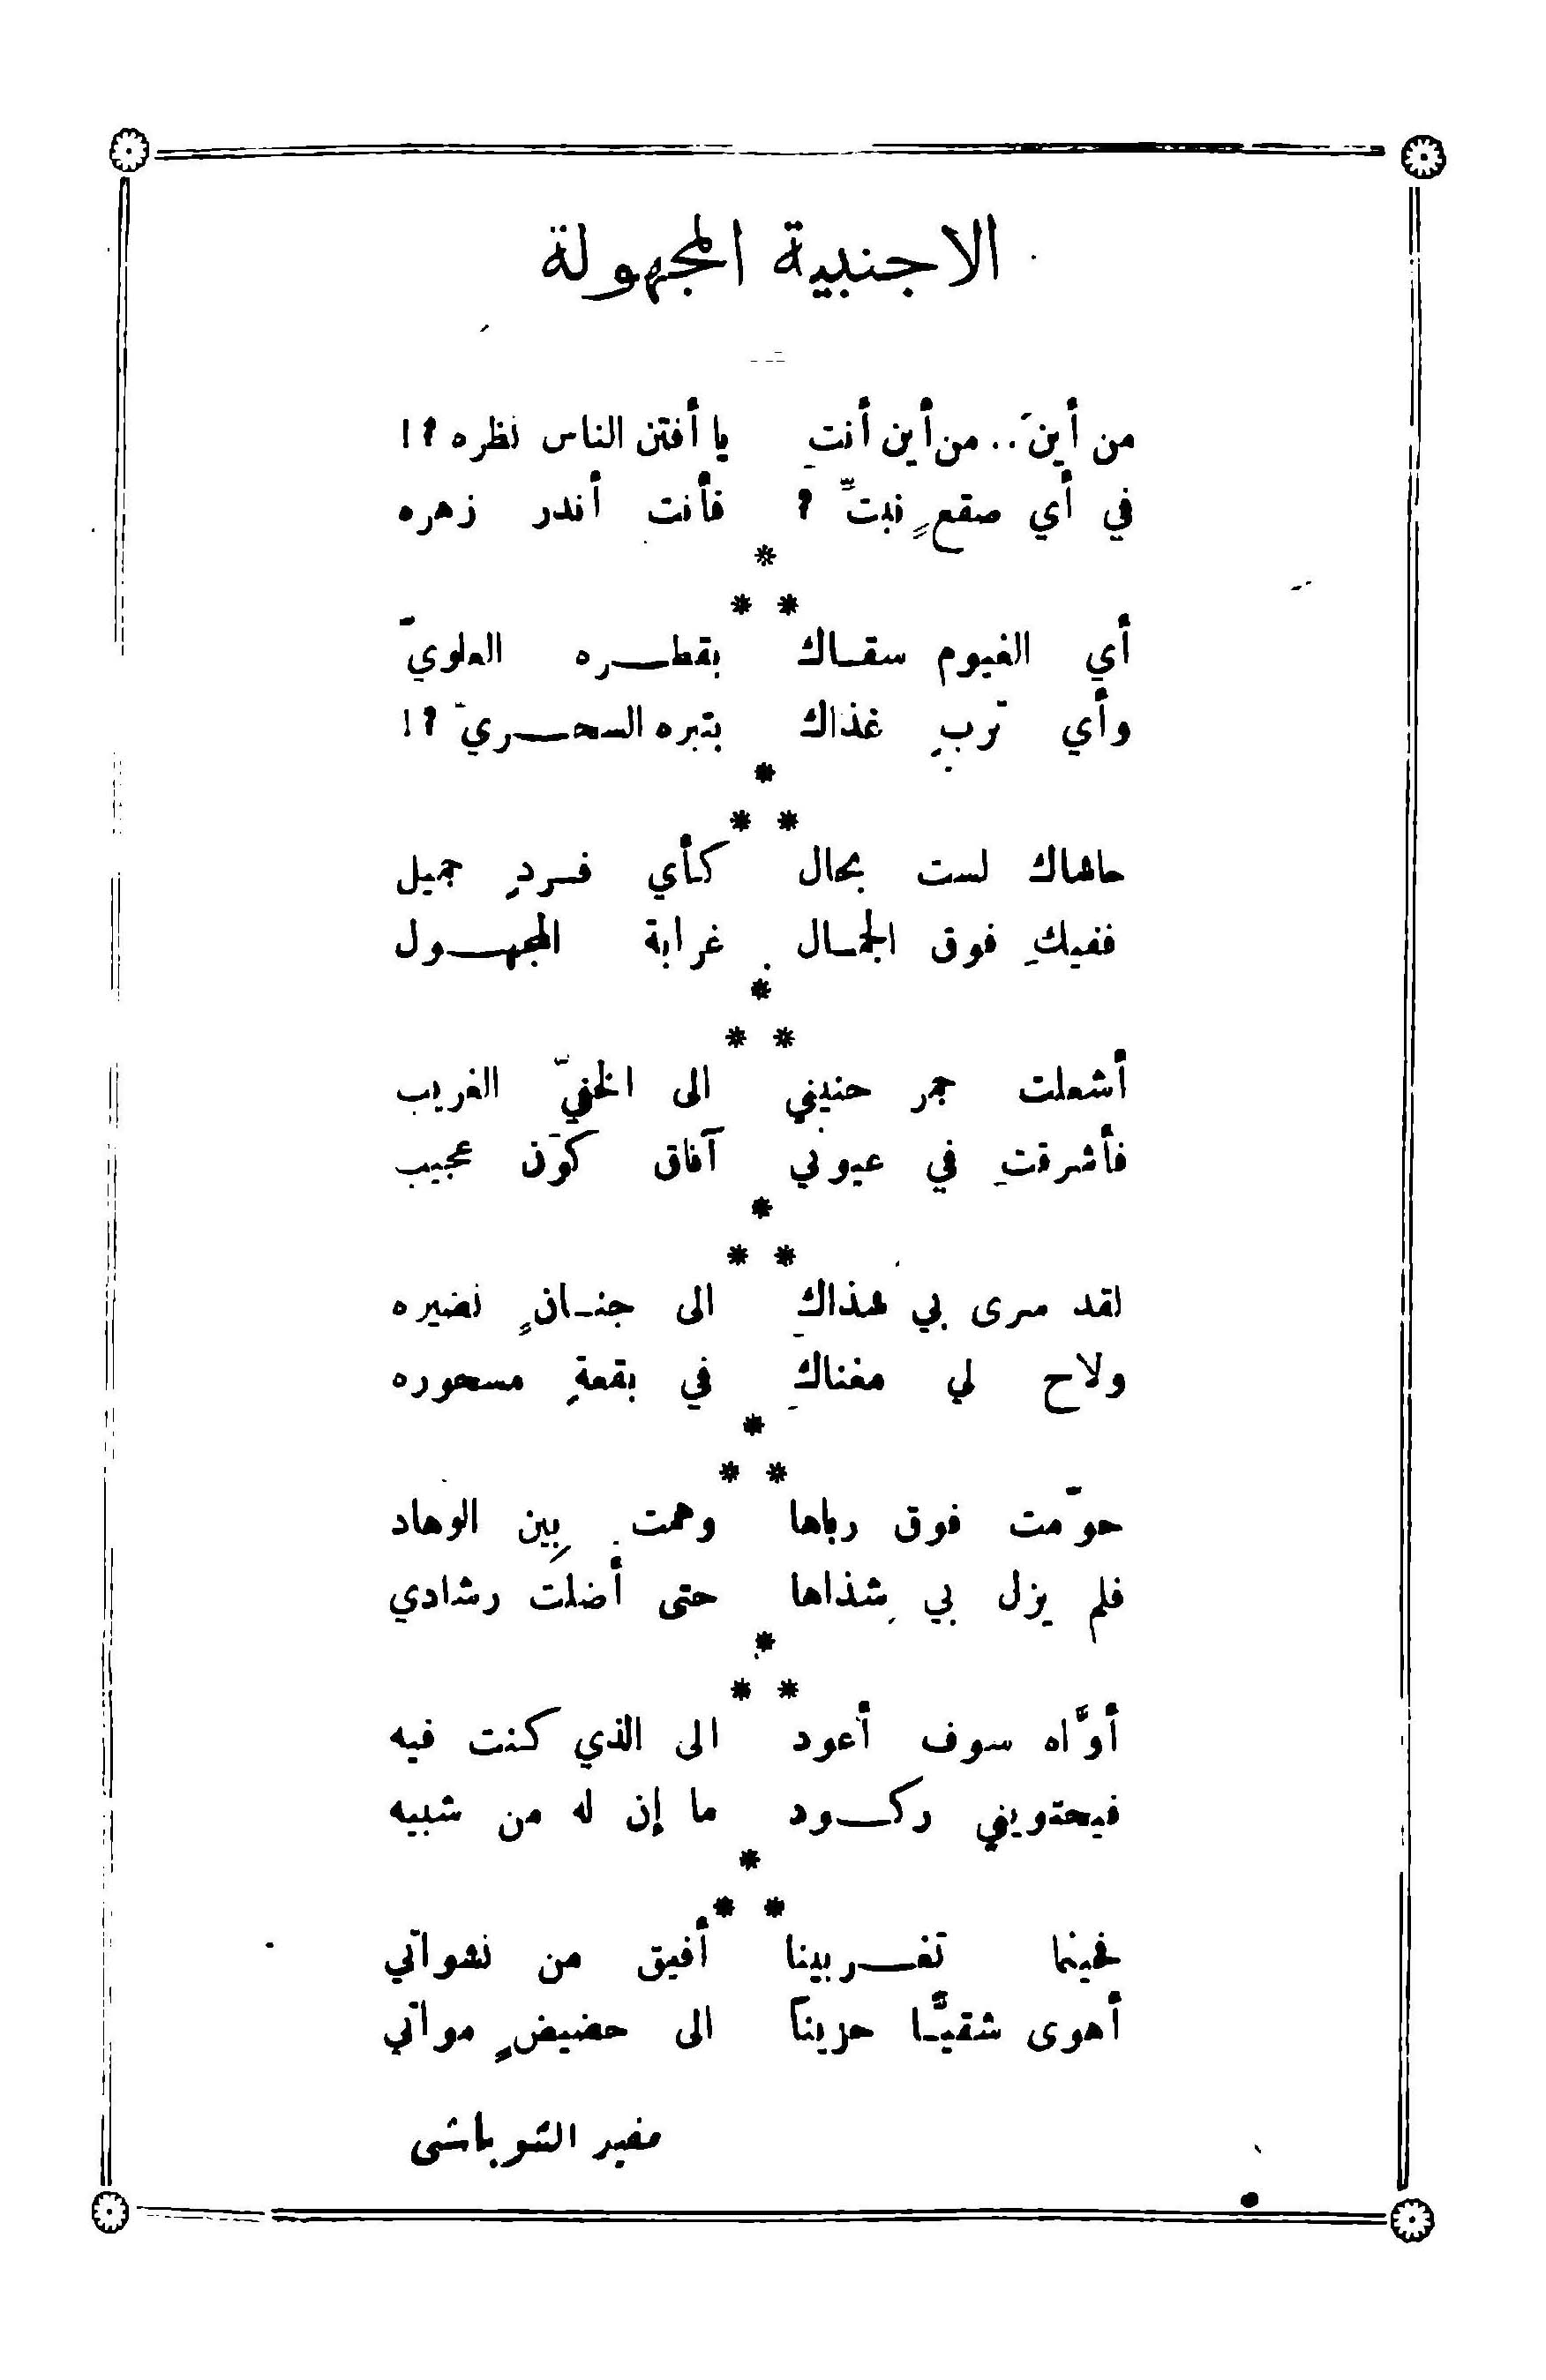 الاجنبية المجهولة
من أينَ.. من أين أنتِ يا أفتن الناس نظره ؟!
في أي صقعٍ نبتِّ ؟ فأنت أندر زهره
*
* *
أي الغيوم سقاك بقطره العلويّ
وأي تربٍ غذاك بتبره السحريّ ؟!
*
* *
حاشاك لست بحال كأي فردٍ جميل
ففيكِ فوق الجمال غرابة المجهول
*
* *
أشعلت جمر حنيني الى الخفيّ الغريب
فأشرقتِ في عيوني آفاق كون عجيب
*
* *
لقد سرى بي شذاكِ الى جنانٍ نضيره
ولاح لي مغناكِ في بقعةٍ مسحوره
*
* *
حوّمت فوق رباها وهمت بين الوهاد
فلم يزل بي شذاها حتى أضلت رشادي
*
* *
أوَّاه سوف أعود الى الذي كنت فيه
فيحتويني ركود ما إن له من شبيه
*
* *
فحينما تغربينا أفيق من نشواتي
أهوى شقيًّا حزيناً الى حضيضٍ مواتي
مفيد الشوباشى